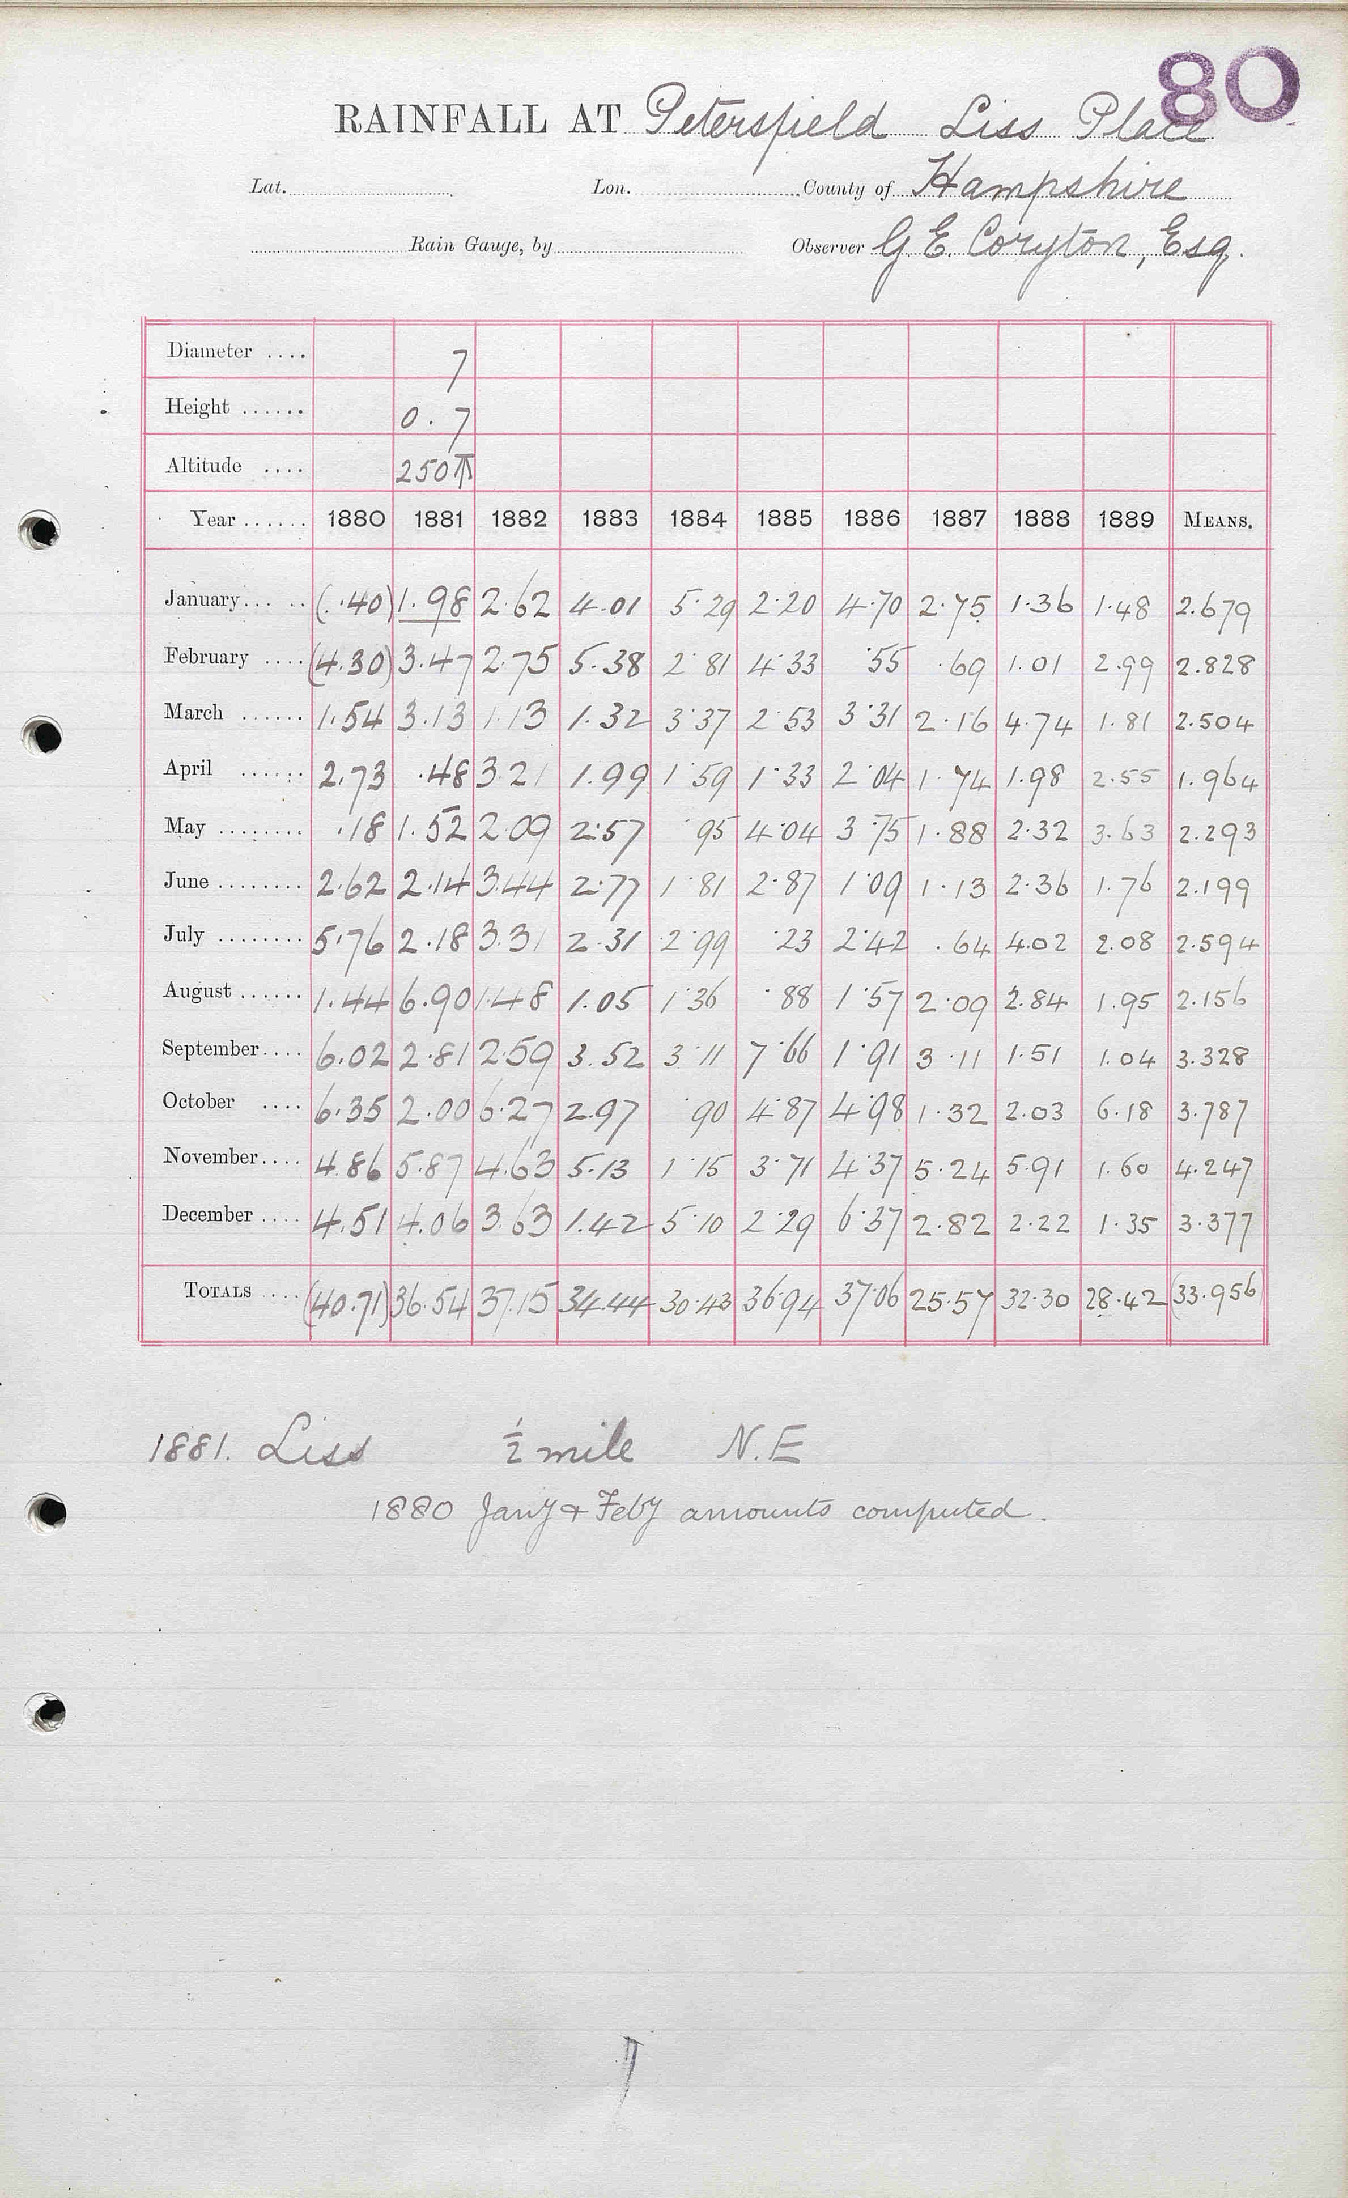 80
RAINFALL AT Petersfield Liss Place
Lat. Lon. County of Hampshire
Rain Gauge, by Observer G. E. Coryton, Esq.
Diameter .... 7
Height ...... 0.7
Altitude .... 250
Year ...... 1880 1881 1882 1883 1884 1885 1886 1887 1888 1889 MEANS.
January... .. (.40) 1.98 2.62 4.01 5.29 2.20 4.70 2.75 1.36 1.48 2.679
February .... (4.30) 3.47 2.75 5.38 2.81 4.33 .55 .69 1.01 2.99 2.828
March ...... 1.54 3.13 1.13 1.32 3.37 2.53 3.31 2.16 4.74 1.81 2.504
April ...... 2.73 .48 3.21 1.99 1.59 1.33 2.04 1.74 1.98 2.55 1.964
May ........ .18 1.52 2.09 2.57 .95 4.04 3.75 1.88 2.32 3.63 2.293
June ........ 2.62 2.14 3.44 2.77 1.81 2.87 1.09 1.13 2.36 1.76 2.199
July ........ 5.76 2.18 3.31 2.31 2.99 .23 2.42 .64 4.02 2.08 2.594
August ...... 1.44 6.90 1.48 1.05 1.36 .88 1.57 2.09 2.84 1.95 2.156
September.... 6.02 2.81 2.59 3.52 3.11 7.66 1.91 3.11 1.51 1.04 3.328
October .... 6.35 2.00 6.27 2.97 .90 4.87 4.98 1.32 2.03 6.18 3.787
November.... 4.86 5.87 4.63 5.13 1.15 3.71 4.37 5.24 5.91 1.60 4.247
December .... 4.51 4.06 3.63 1.42 5.10 2.29 6.37 2.82 2.22 1.35 3.377
TOTALS .... (40.71) 36.54 37.15 34.44 30.43 36.94 37.06 25.57 32.30 28.42 (33.956)
1881. Liss ½ mile N.E
1880 Jany & Feby amounts computed.